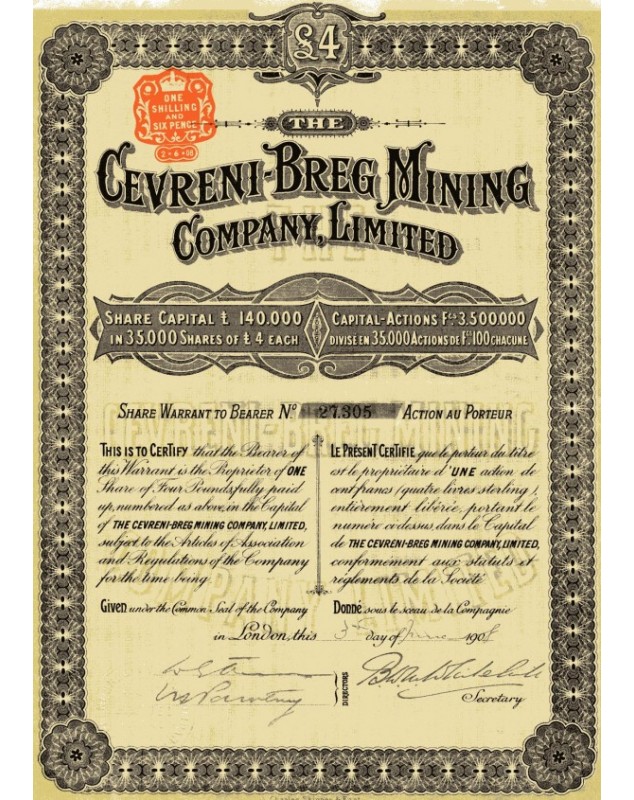 £4
ONE
SHILLING
AND
SIX PENCE
2-6-08
THE
CEVRENI-BREG MINING
COMPANY, LIMITED
SHARE CAPITAL £ 140.000
IN 35.000 SHARES OF £ 4 EACH
CAPITAL-ACTIONS Fcs 3.500.000
DIVISÉ EN 35.000 ACTIONS DE Fcs 100 CHACUNE
SHARE WARRANT TO BEARER No 27.305 ACTION AU PORTEUR
THIS IS TO CERTIFY that the Bearer of
this Warrant is the Proprietor of ONE
Share of Four Pounds fully paid
up, numbered as above, in the Capital
of THE CEVRENI-BREG MINING COMPANY, LIMITED,
subject to the Articles of Association
and Regulations of the Company
for the time being.
LE PRÉSENT CERTIFIE que le porteur du titre
est le propriétaire d'UNE action de
cent francs (quatre livres sterling),
entièrement libérée, portant le
numéro ci-dessus, dans le Capital
de THE CEVRENI-BREG MINING COMPANY, LIMITED,
conformément aux statuts et
règlements de la Société
Given under the Common Seal of the Company
Donné sous le sceau de la Compagnie
in London, this 3rd day of June 1908
DIRECTORS
Secretary
£4
£4
£4
£4